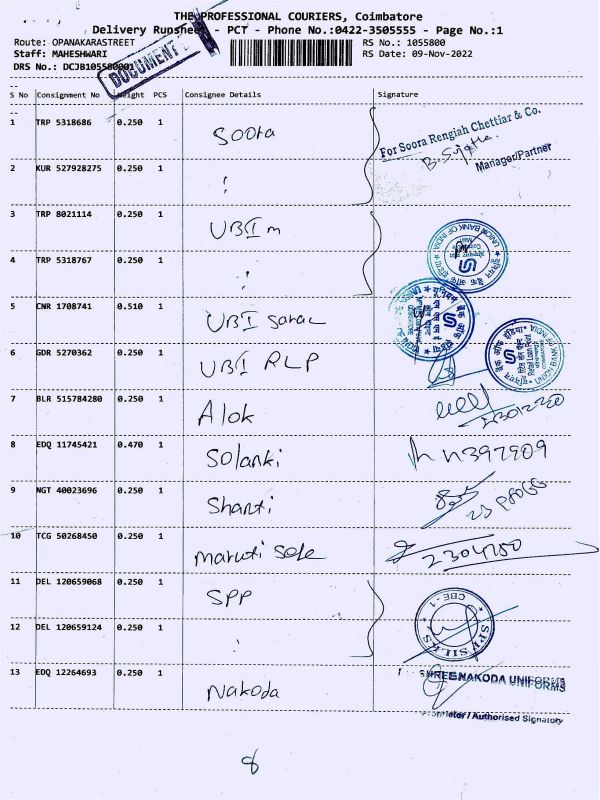 THE PROFESSIONAL COURIERS, Coimbatore
Delivery Runsheet - PCT - Phone No.:0422-3505555 - Page No.:1
Route: OPANAKARASTREET RS No.: 1055800
Staff: MAHESHWARI RS Date: 09-Nov-2022
DRS No.: DCJB105580001
DOCUMENT
S No Consignment No Weight PCS Consignee Details Signature
1 TRP 5318686 0.250 1 Soora
For Soora Rengiah Chettiar & Co.
Manager/Partner
2 KUR 527928275 0.250 1
3 TRP 8021114 0.250 1 UBI m
UNION BANK OF INDIA
4 TRP 5318767 0.250 1
5 CNR 1708741 0.510 1 UBI sarac
6 GDR 5270362 0.250 1 UBI RLP
UNION BANK OF INDIA
Retail Loan Point
7 BLR 515784280 0.250 1 Alok
8 EDQ 11745421 0.470 1 Solanki
9 NGT 40023696 0.250 1 Shanti
10 TCG 50268450 0.250 1 maruti sele
11 DEL 120659068 0.250 1 SPP
SPP SILKS
CBE - 1
12 DEL 120659124 0.250 1
13 EDQ 12264693 0.250 1 Nakoda
SHREE NAKODA UNIFORMS
Proprietor / Authorised Signatory
8